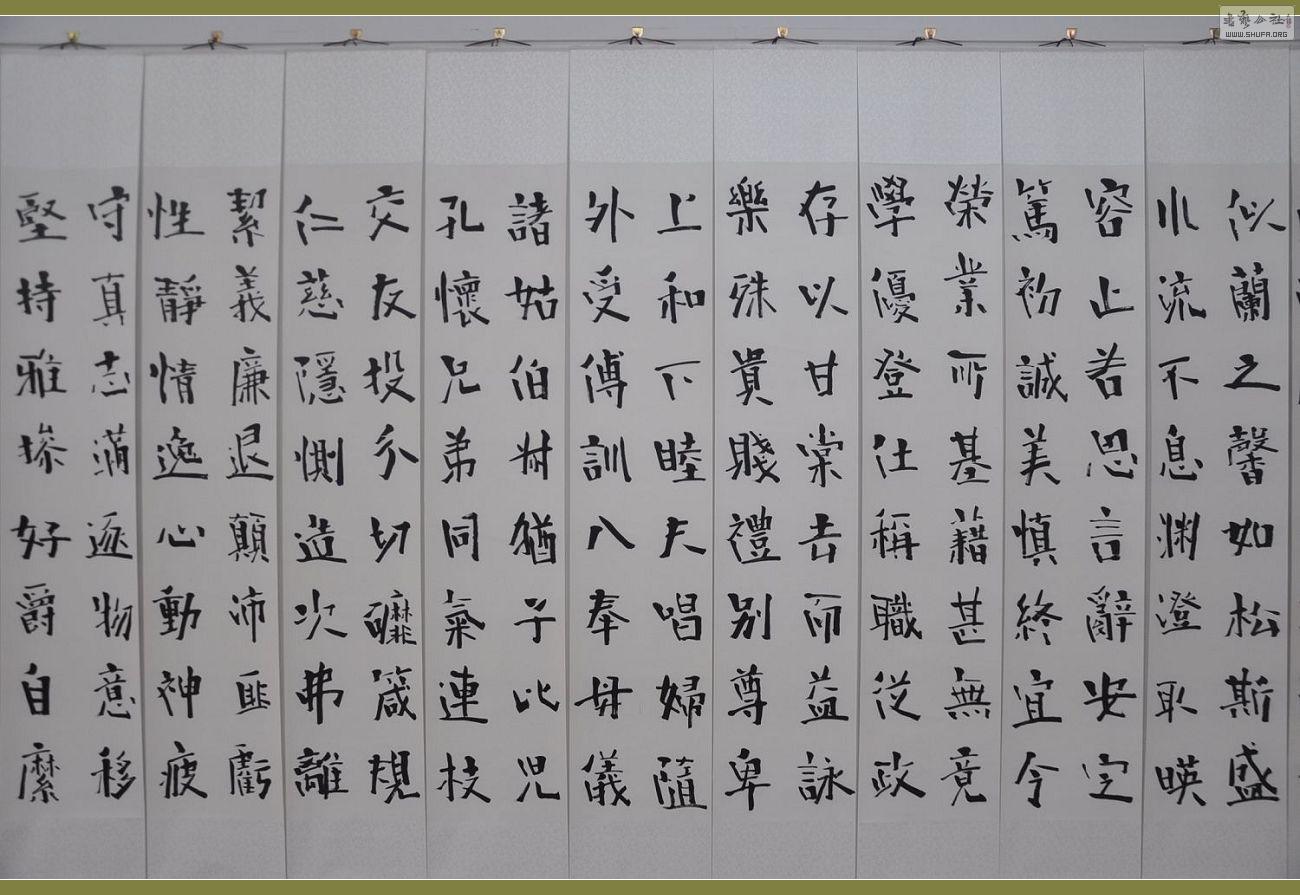 似蘭之馨如松斯盛
川流不息淵澄取暎
容止若思言辭安定
篤初誠美慎終宜令
榮業所基藉甚無竟
學優登仕稱職從政
存以甘棠去而益詠
樂殊貴賤禮別尊卑
上和下睦夫唱婦隨
外受傅訓入奉母儀
諸姑伯叔猶子比兒
孔懷兄弟同氣連枝
交友投分切箴規
仁慈隱惻造次弗離
絜義廉退顛沛匪虧
性靜情逸心動神疲
守真志滿逐物意移
堅持雅操好爵自縻
書藝公社
WWW.SHUFA.ORG